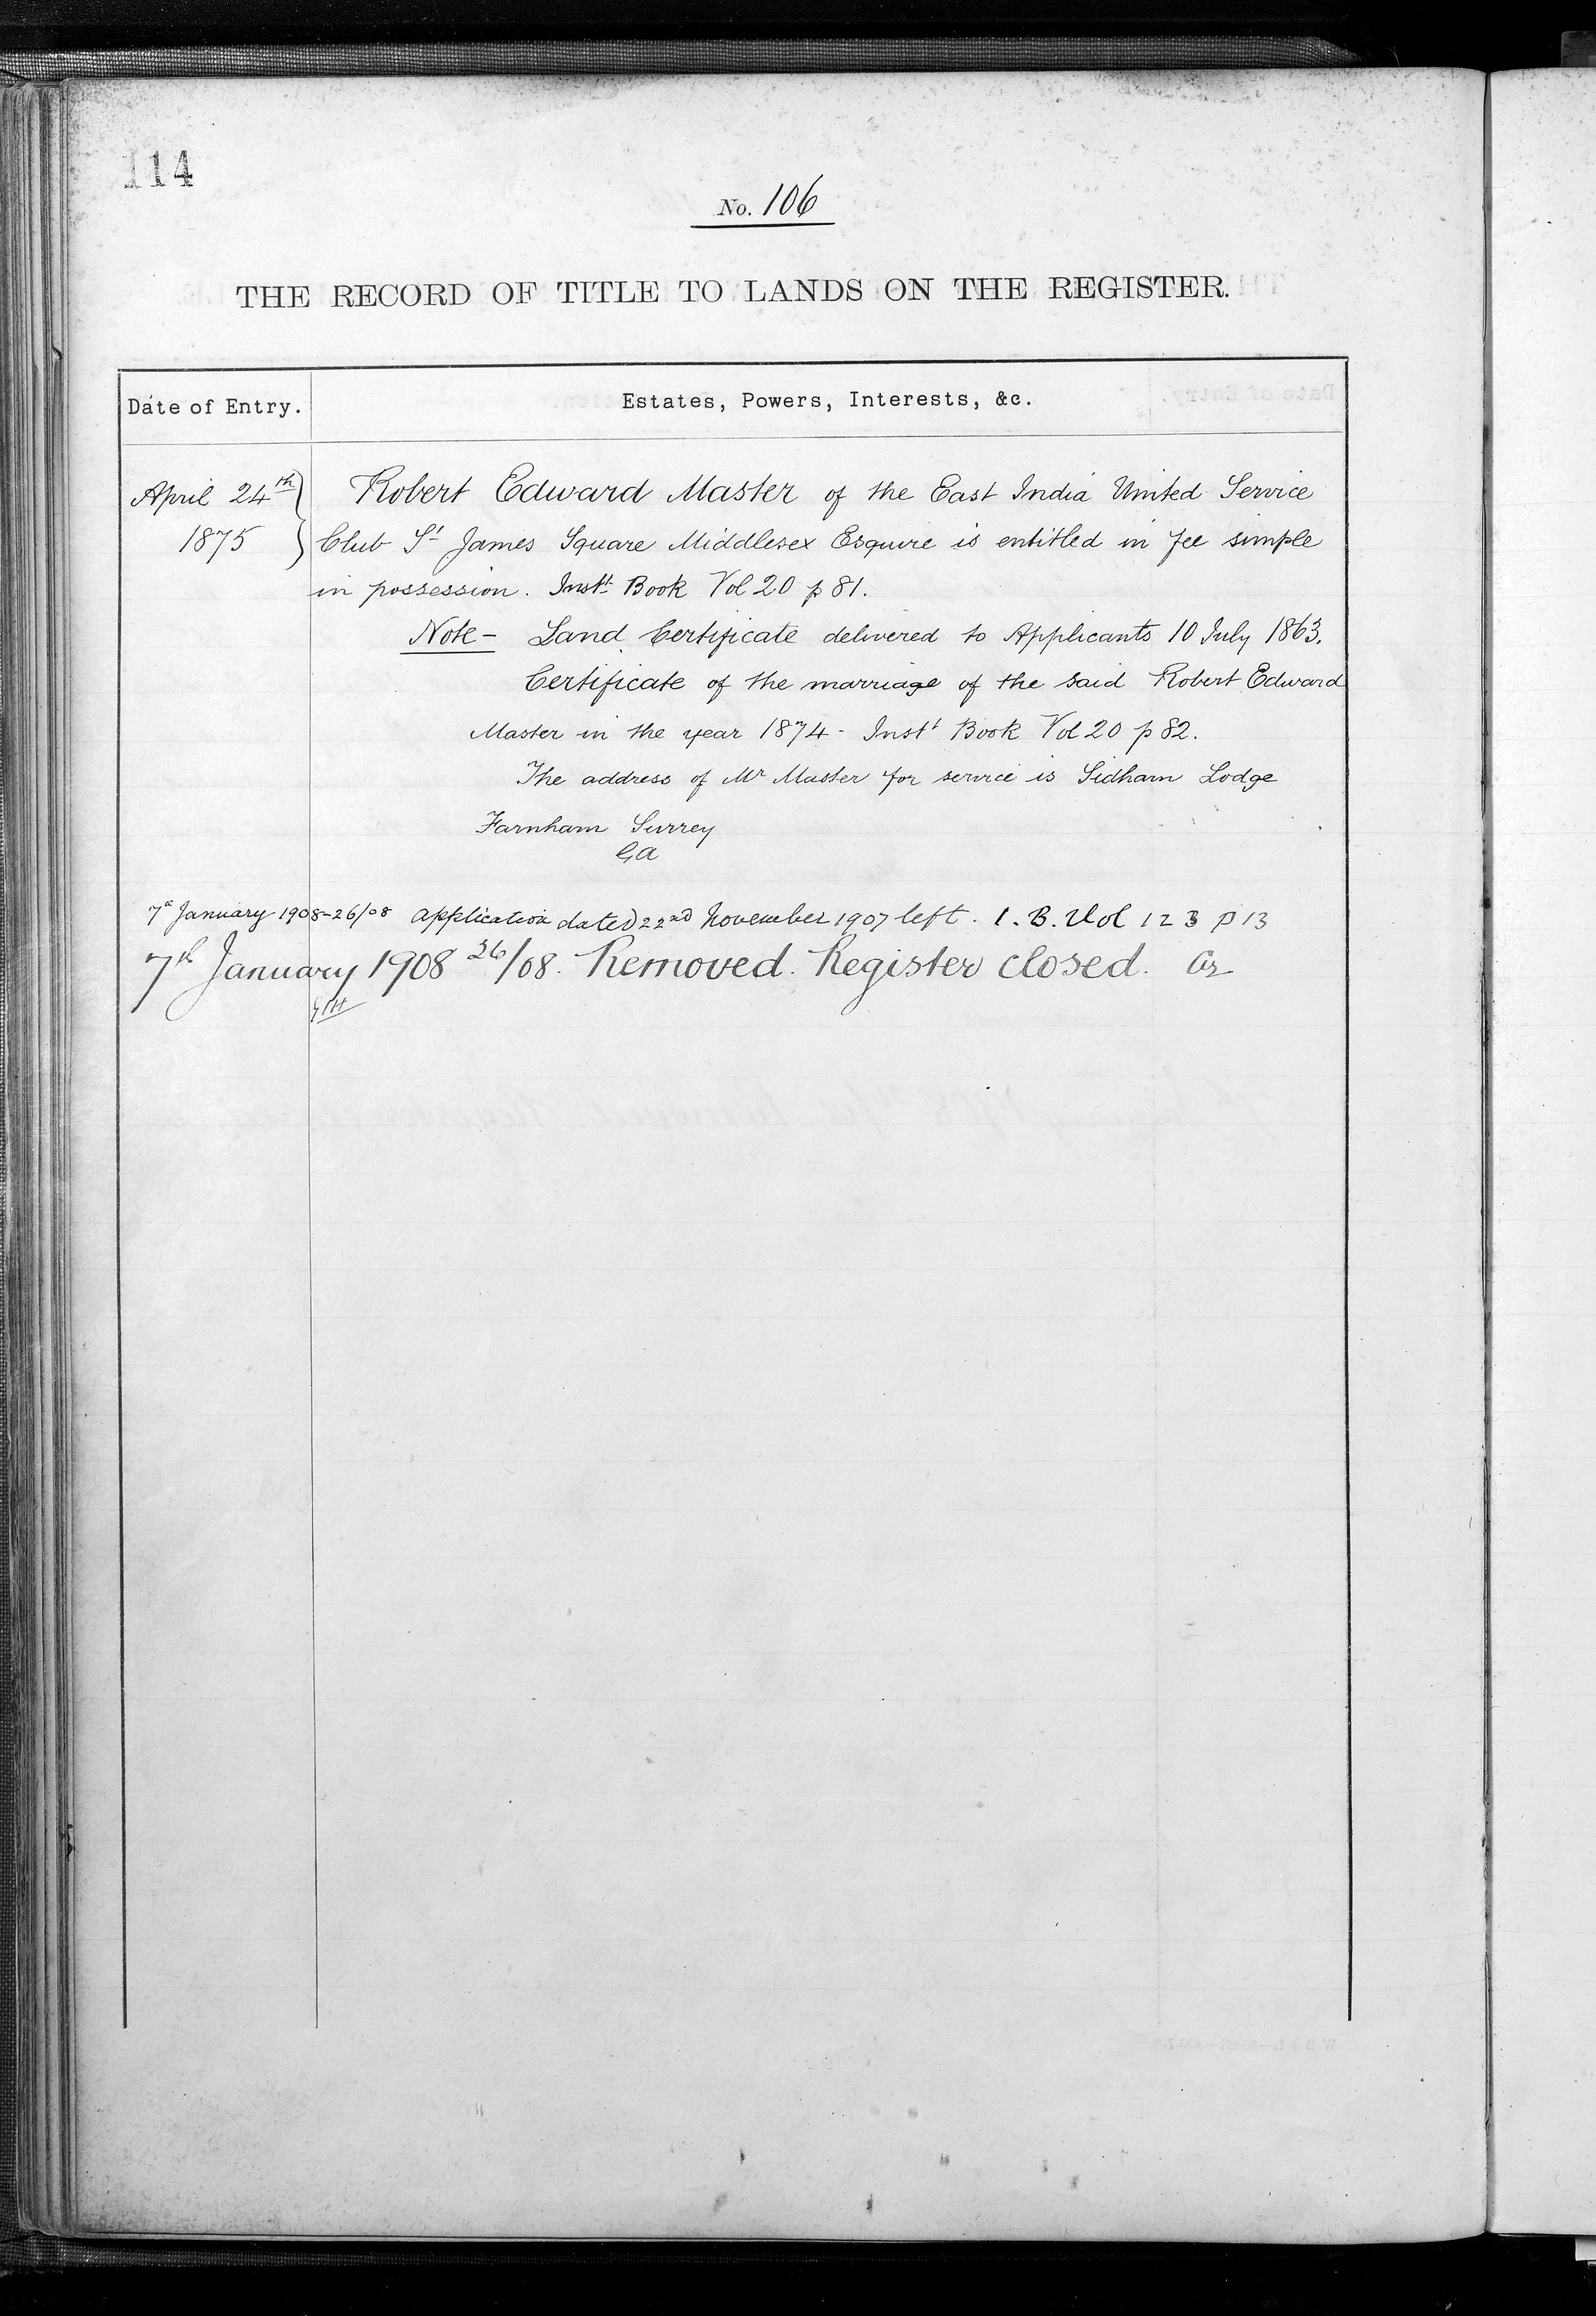 114
No. 106
THE RECORD OF TITLE TO LANDS ON THE REGISTER.
Date of Entry. Estates, Powers, Interests, &c.
April 24th 1875
Robert Edward Master of the East India United Service
Club St James Square Middlesex Esquire is entitled in fee simple
in possession. Instt Book Vol 20 p 81.
Note - Land Certificate delivered to Applicants 10 July 1863.
Certificate of the marriage of the said Robert Edward
Master in the year 1874 - Instt Book Vol 20 p 82.
The address of Mr Master for service is Sidham Lodge
Farnham Surrey
7th January 1908-26/08 Application dated 22nd November 1907 left. I.B. Vol 123 p 13
7th January 1908 26/08. Removed. Register closed.